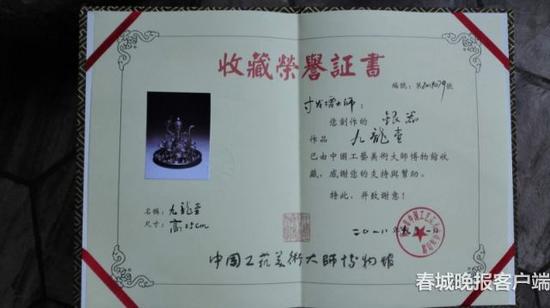 收藏榮譽証書
編號：第 號
大師：
您創作的 銀器
作品 九龍壺
已由中國工藝美術大師博物館收
藏，感謝您的支持與幫助。
特此，并致谢意！
名稱：九龍壺
尺寸：高25cm
二〇一八年
中国工艺美術大师博物館
春城晚报客户端